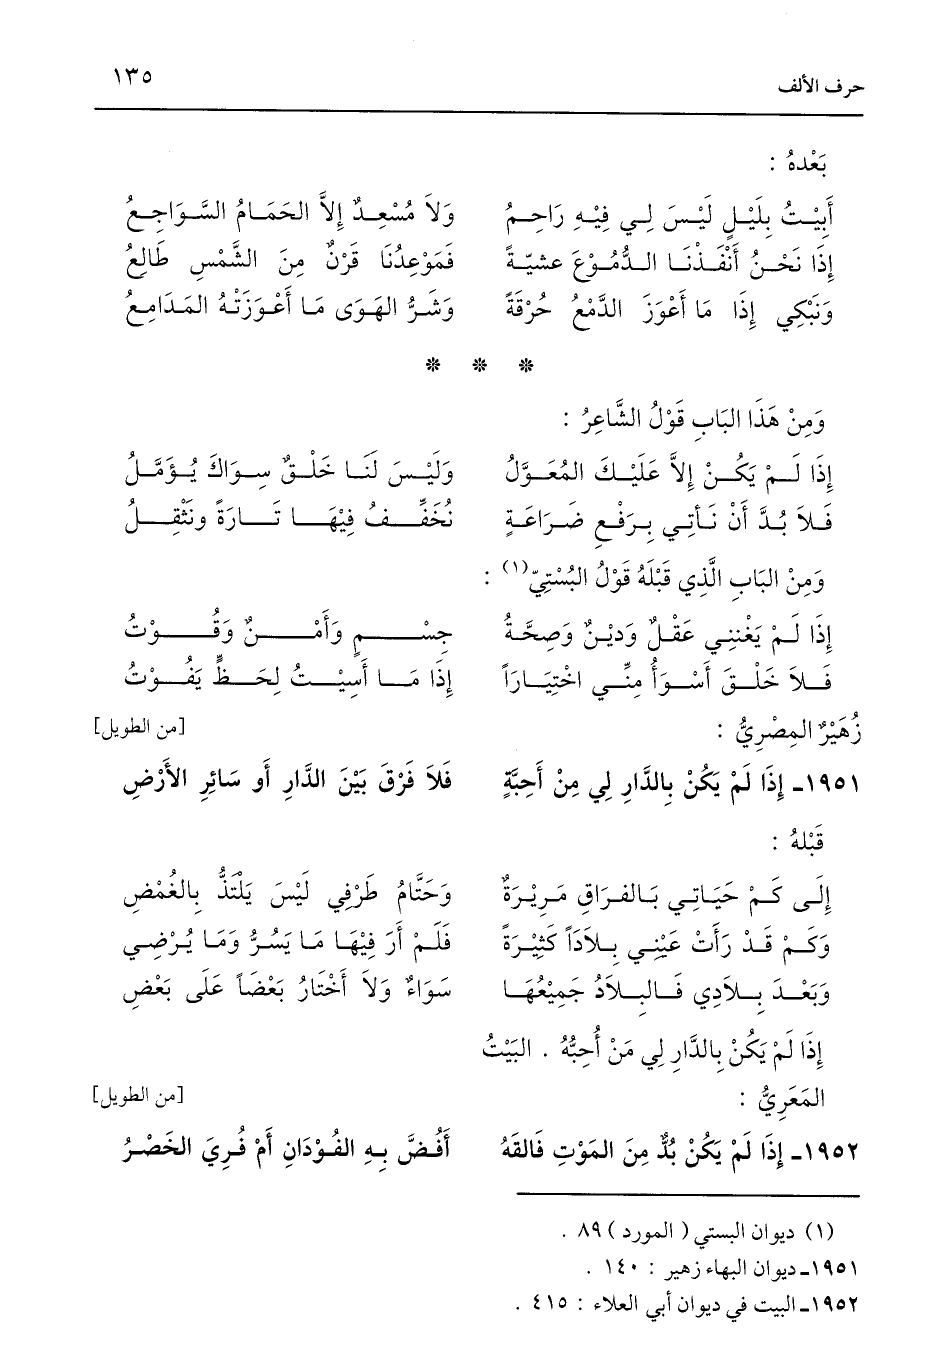 حرف الألف ١٣٥
بَعْدهُ :
أَبِيْتُ بِلَيْلٍ لَيْسَ لِي فِيْهِ رَاحِمٌ وَلاَ مُسْعِدٌ إِلاَّ الحَمَامُ السَّوَاجِعُ
إِذَا نَحْنُ أَنْفَذْنَا الدُّمُوْعَ عشيّةً فَمَوْعِدُنَا قَرْنٌ مِنَ الشَّمْسِ طَالِعُ
وَنَبْكِي إِذَا مَا أَعْوَزَ الدَّمْعُ حُرْقَةً وَشَرُّ الهَوَى مَا أَعْوَزَتْهُ المَدَامِعُ
* * *
وَمِنْ هَذَا البَابِ قَوْلُ الشَّاعِرُ :
إِذَا لَمْ يَكُنْ إِلاَّ عَلَيْكَ المُعَوَّلُ وَلَيْسَ لَنَا خَلْقٌ سِوَاكَ يُؤَمَّلُ
فَلاَ بُدَّ أَنْ نَأتِي بِرَفْعِ ضَرَاعَةٍ نُخَفِّفُ فِيْهَا تَارَةً ونثْقِلُ
وَمِنْ البَابِ الَّذِي قَبْلَهُ قَوْلُ البُسْتِيّ(١) :
إِذَا لَمْ يَغْنِنِي عَقْلٌ وَدِيْنٌ وَصِحَّةُ جِسْمٍ وَأَمْنٌ وَقُوْتُ
فَلاَ خَلْقَ أَسْوَأُ مِنِّي اخْتِيَارَاً إِذَا مَا أَسِيْتُ لِحَظٍّ يَفُوْتُ
زُهَيْرٌ المِصْرِيُّ : [من الطويل]
١٩٥١ـ إِذَا لَمْ يَكُنْ بِالدَّارِ لِي مِنْ أَحِبَّةٍ فَلاَ فَرْقَ بَيْنَ الدَّارِ أَو سَائِرِ الأَرْضِ
قَبْلهُ :
إِلَى كَمْ حَيَاتِي بَالفرَاقِ مَرِيْرَةٌ وَحَتَّامُ طَرْفِي لَيْسَ يَلْتَذُّ بِالغُمْضِ
وَكَمْ قَدْ رَأَتْ عَيْنِي بِلاَدَاً كَثِيْرَةً فَلَمْ أَرَ فِيْهَا مَا يَسُرُّ وَمَا يُرْضِي
وَبَعْدَ بِلاَدِي فَالبِلاَدُ جَمِيْعُهَا سَوَاءٌ وَلاَ أَخْتَارُ بَعْضَاً عَلَى بَعْضِ
إِذَا لَمْ يَكُنْ بِالدَّارِ لِي مَنْ أُحِبُّهُ . البَيْتُ
المَعَرِيُّ : [من الطويل]
١٩٥٢ـ إِذَا لَمْ يَكُنْ بُدٌّ مِنَ المَوْتِ فَالقَهُ أَفُضَّ بِهِ الفُوْدَانِ أَمْ فُرِيَ الخَصْرُ
(١) ديوان البستي ( المورد ) ٨٩ .
١٩٥١ـ ديوان البهاء زهير : ١٤٠ .
١٩٥٢ـ البيت في ديوان أبي العلاء : ٤١٥ .